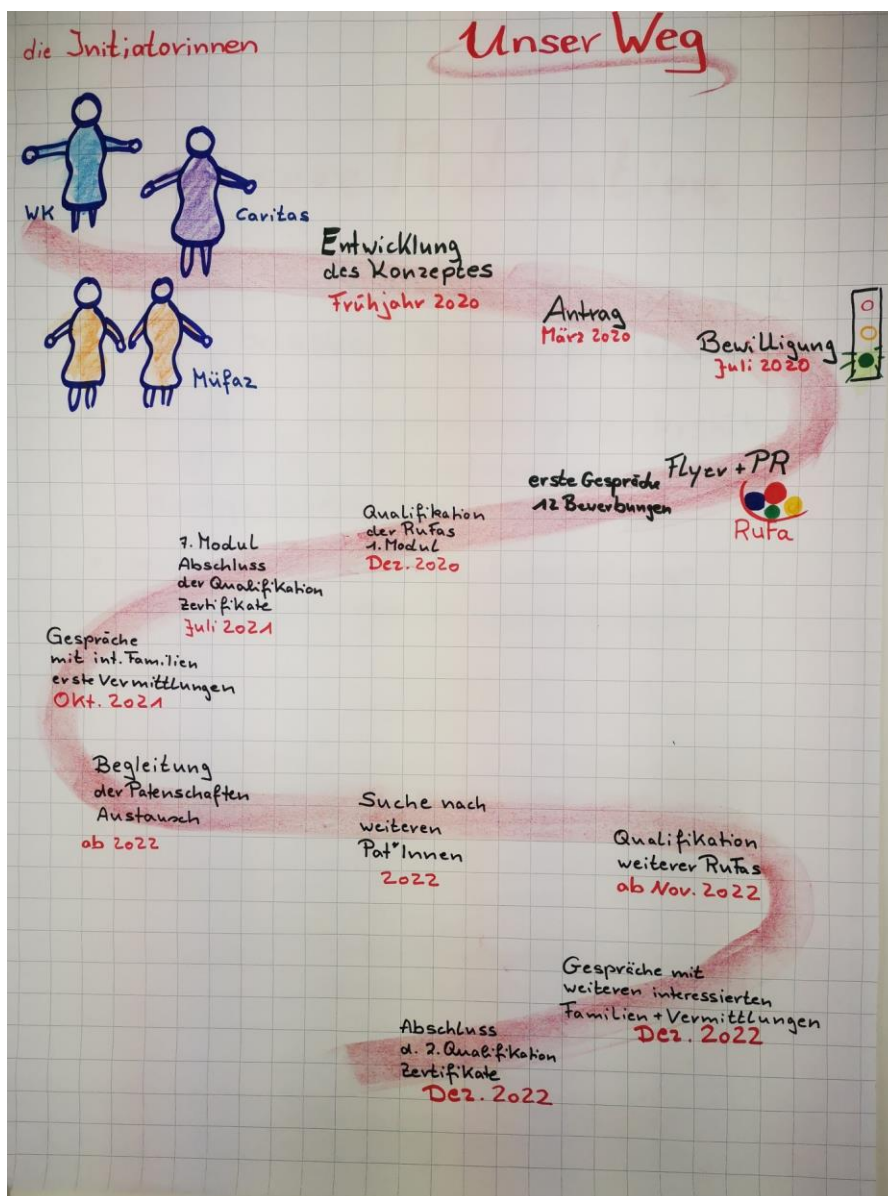 die Initiatorinnen
Unser Weg
WK
Caritas
Müfaz
Entwicklung
des Konzeptes
Frühjahr 2020
Antrag
März 2020
Bewilligung
Juli 2020
Flyer + PR
RuFa
erste Gespräche
12 Bewerbungen
Qualifikation
der RuFas
1. Modul
Dez. 2020
7. Modul
Abschluss
der Qualifikation
Zertifikate
Juli 2021
Gespräche
mit int. Familien
erste Vermittlungen
Okt. 2021
Begleitung
der Patenschaften
Austausch
ab 2022
Suche nach
weiteren
Pat*Innen
2022
Qualifikation
weiterer RuFas
ab Nov. 2022
Gespräche mit
weiteren interessierten
Familien + Vermittlungen
Dez. 2022
Abschluss
d. 2. Qualifikation
Zertifikate
Dez. 2022